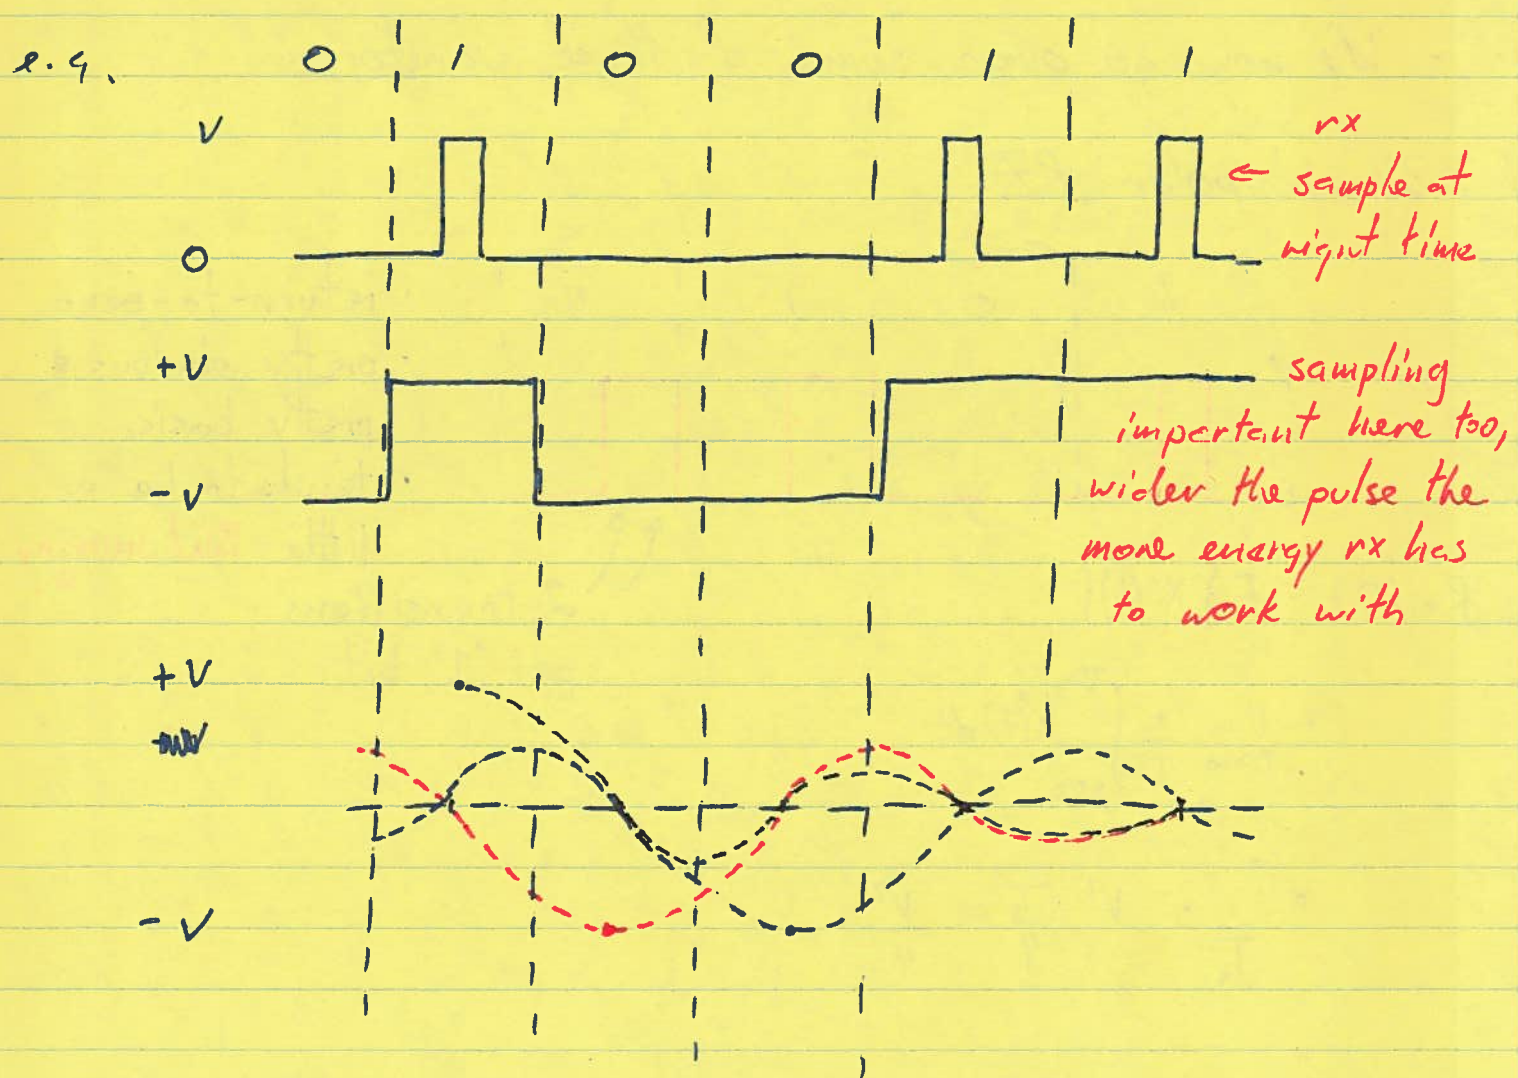 e.g. 0 1 0 0 1 1
V
rx
← sample at
right time
0
+V
sampling
important here too,
-V
wider the pulse the
more energy rx has
to work with
+V
-V